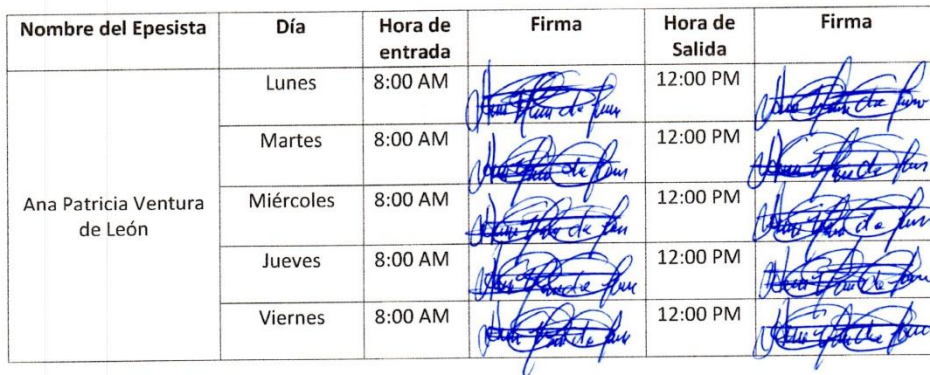 Nombre del Epesista Día Hora de entrada Firma Hora de Salida Firma
Ana Patricia Ventura de León
Lunes 8:00 AM 12:00 PM
Martes 8:00 AM 12:00 PM
Miércoles 8:00 AM 12:00 PM
Jueves 8:00 AM 12:00 PM
Viernes 8:00 AM 12:00 PM